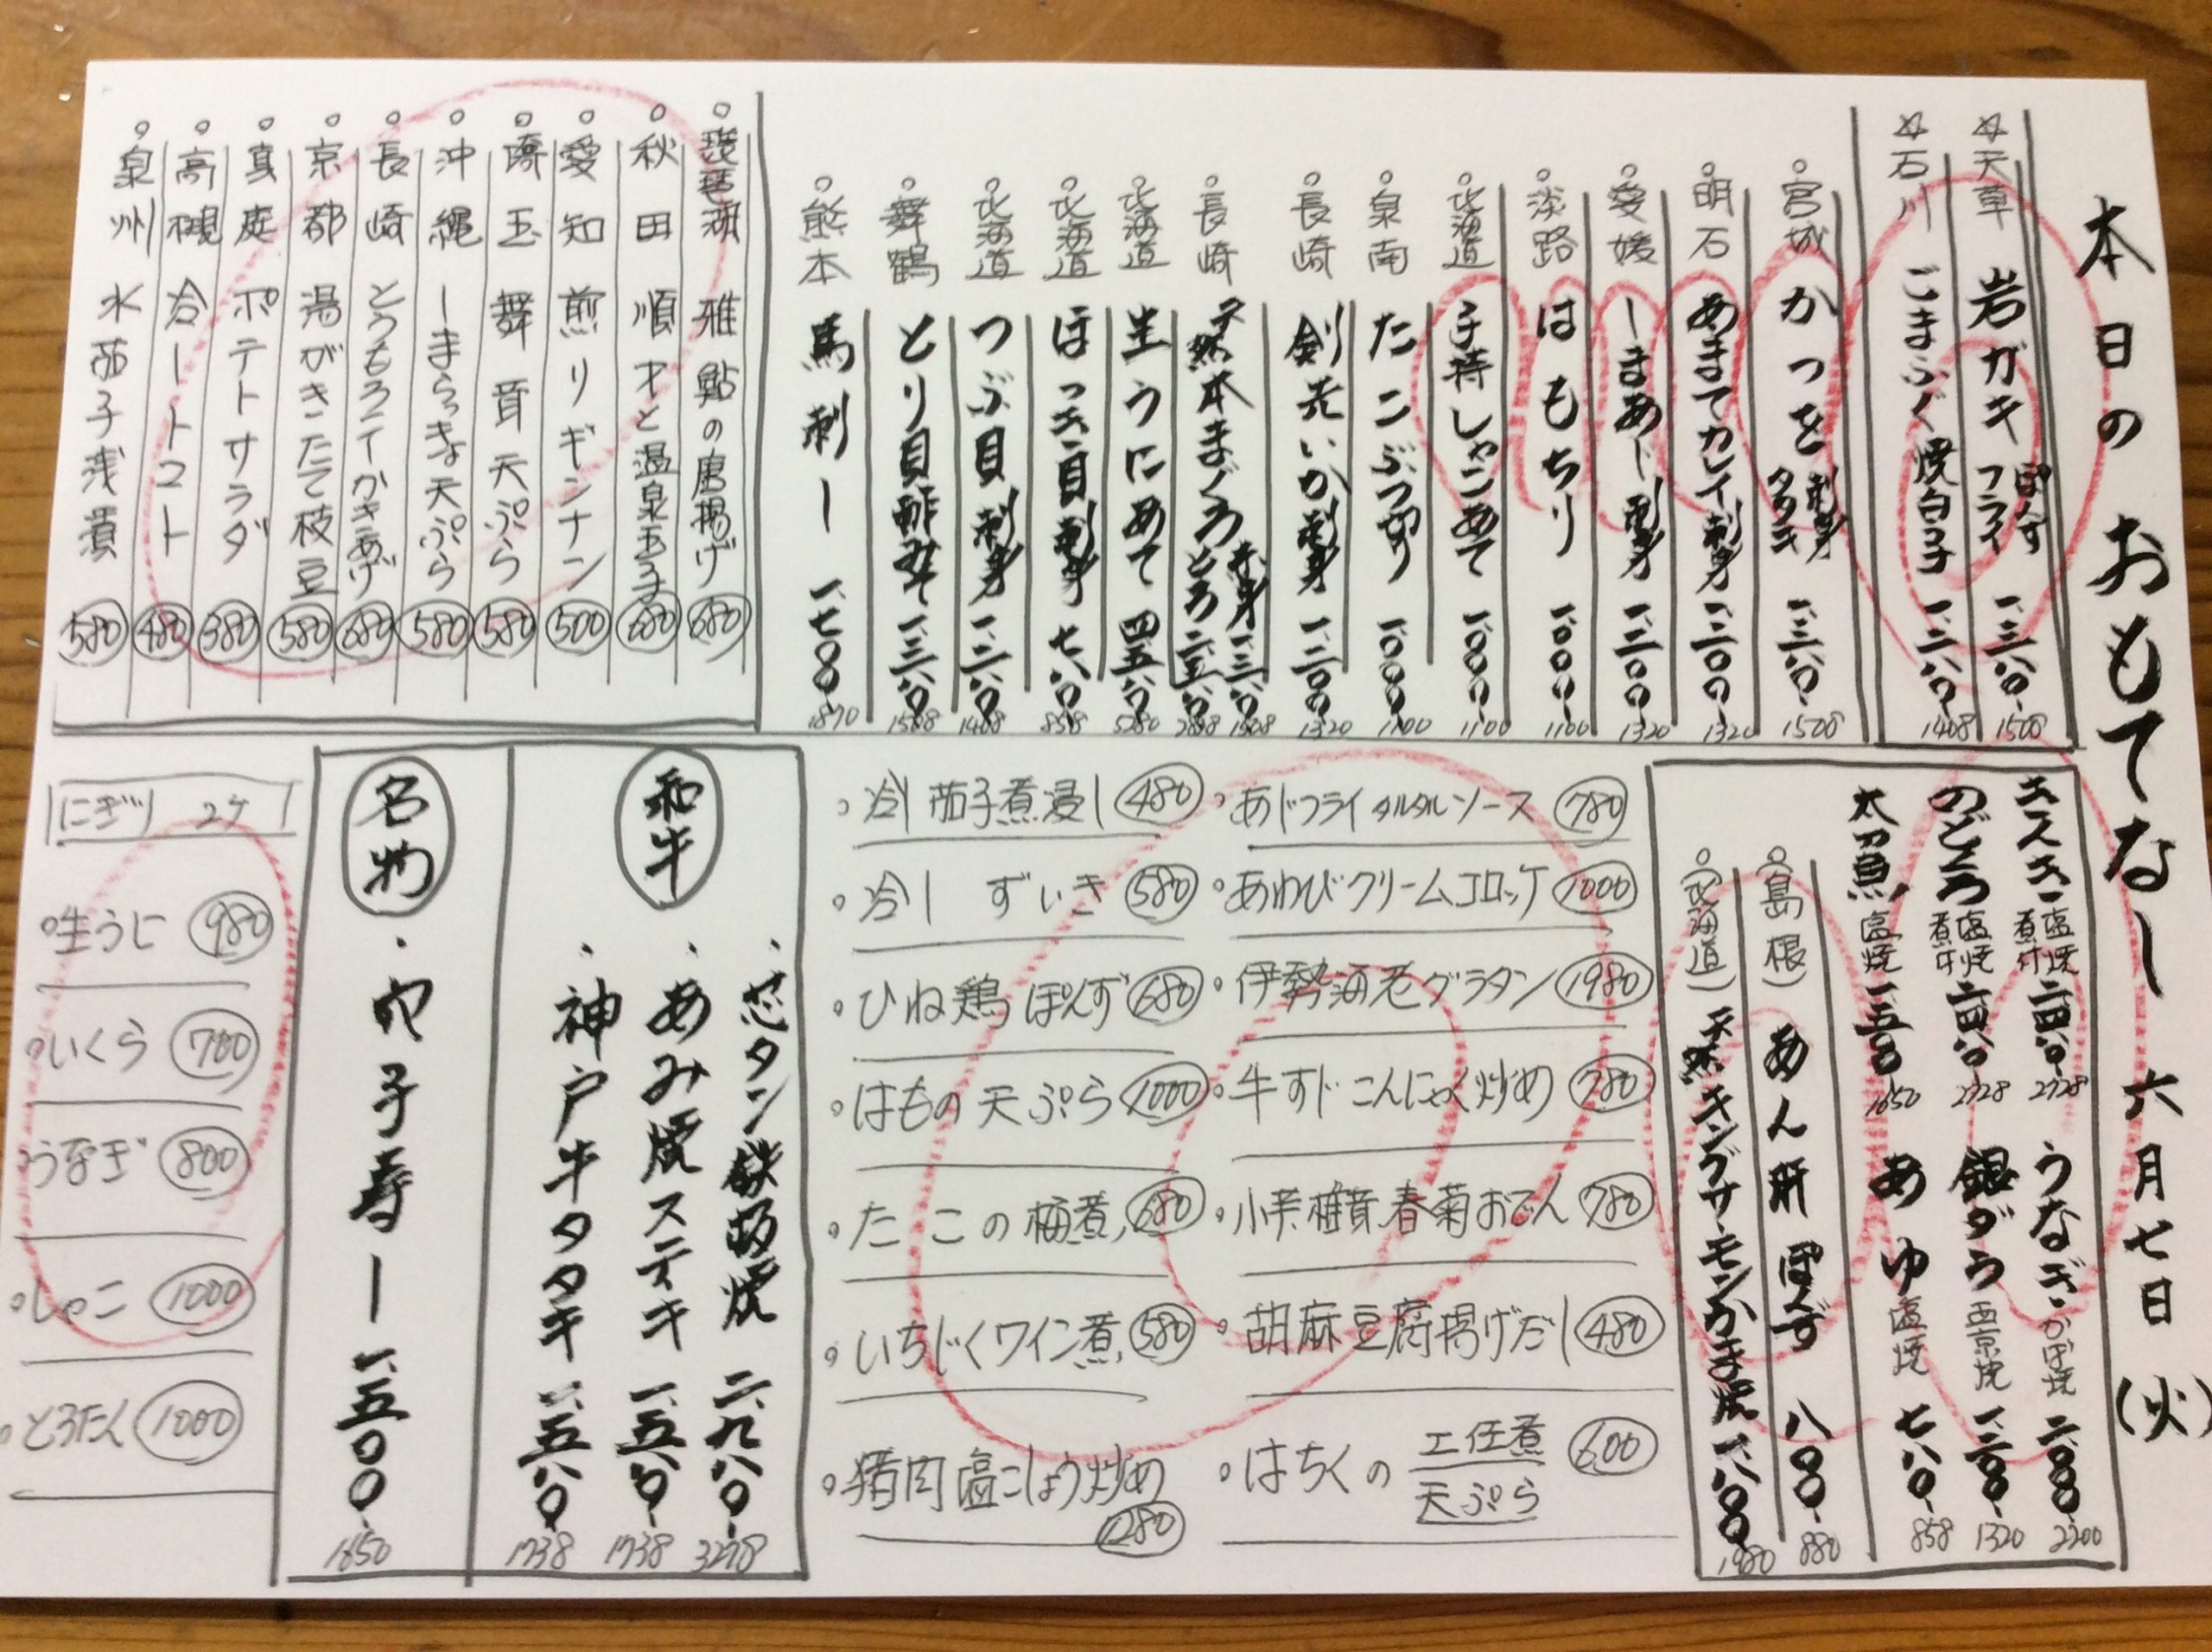 本日のおもてなし 六月七日(火)
☆天草 岩ガキ ぽんず フライ 一、三八〇 1508
☆石川 ごまふぐ焼白子 一、二八〇 1408
○宮城 かつを 刺身 タタキ 一、三八〇 1508
○明石 あまてカレイ刺身 一、二〇〇 1320
○愛媛 しまあじ刺身 一、二〇〇 1320
○淡路 はもちり 一、〇〇〇 1100
○北海道 子持しゃこあて 一、〇〇〇 1100
○泉南 たこぶつ切り 一、〇〇〇 1100
○長崎 剣先いか刺身 一、二〇〇 1320
○長崎 天然本まぐろ 赤身 一、三八〇 1508 とろ 二、五八〇 2838
○北海道 生うにあて 四、八〇〇 5280
○北海道 ほっき貝刺身 七八〇 858
○北海道 つぶ貝刺身 一、二八〇 1408
○舞鶴 とり貝酢みそ 一、三八〇 1508
○熊本 馬刺し 一、七〇〇 1870
○琵琶湖 稚鮎の唐揚げ 680
○秋田 順才と温泉玉子 680
○愛知 煎りギンナン 500
○埼玉 舞茸天ぷら 580
○沖縄 しまらっきょ天ぷら 580
○長崎 とうもろこしかきあげ 680
○京都 湯がきたて枝豆 580
○真庭 ポテトサラダ 380
○高槻 冷しトマト 480
○泉州 水茄子浅漬 580
キンキ 塩焼 煮付 二、四八〇 2728
のどぐろ 塩焼 煮付 二、四八〇 2728
太刀魚 塩焼 一、五〇〇 1650
うなぎ かば焼 二、〇〇〇 2200
銀ダラ 西京焼 一、二〇〇 1320
あゆ 塩焼 七八〇 858
○島根) あん肝ぽんず 八〇〇 880
○北海道) 天然キングサーモンかま焼 一、八〇〇 1980
○あじフライタルタルソース 780
○あわびクリームコロッケ 1000
○伊勢海老グラタン 1980
○牛すじこんにゃく炒め 780
○小芋椎茸春菊おでん 780
○胡麻豆腐揚げだし 480
○はちくの 土佐煮 天ぷら 600
○冷し茄子煮浸し 480
○冷し ずいき 580
○ひね鶏ぽんず 680
○はもの天ぷら 1000
○たこの梅煮 680
○いちじくワイン煮 580
○猪肉塩こしょう炒め 1280
和牛
・芯タン鉄板焼 二、九八〇 3278
・あみ焼ステーキ 一、五八〇 1738
・神戸牛タタキ 一、五八〇 1738
名物
・穴子寿し 一、五〇〇 1650
にぎり 2ケ
○生うに 980
○いくら 700
○うなぎ 800
○しゃこ 1000
○とろたく 1000